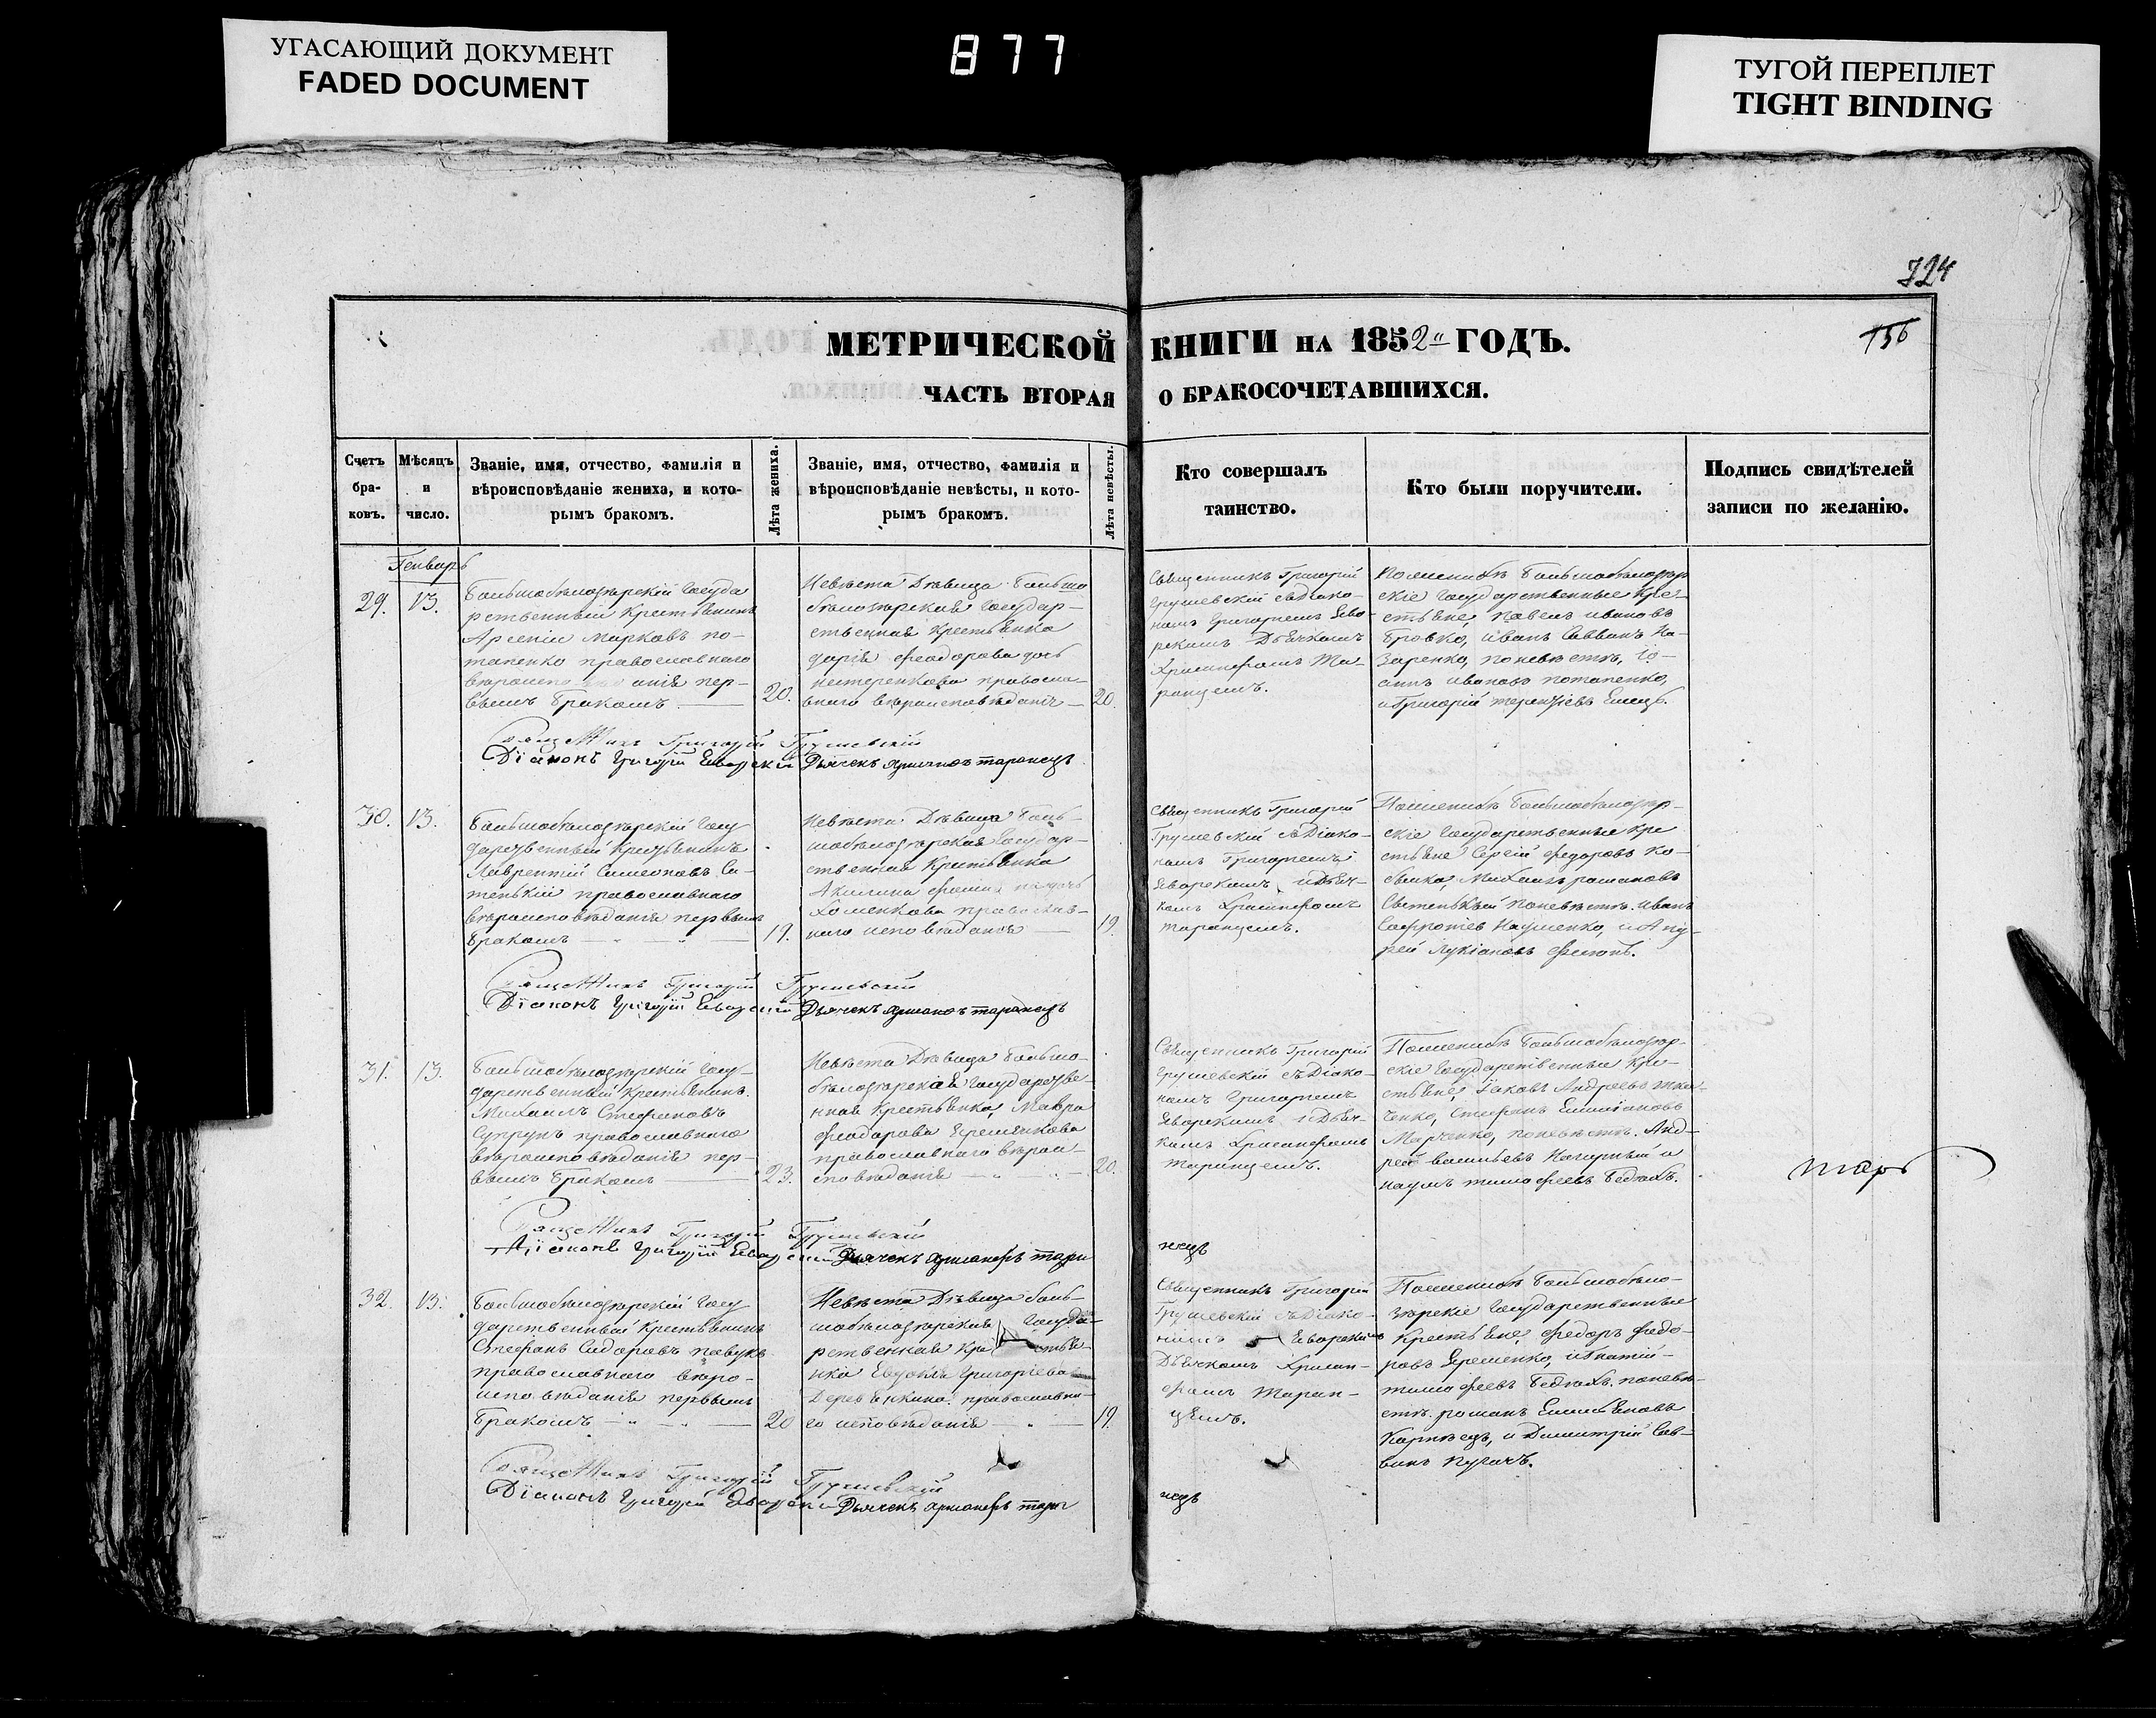 УГАСАЮЩИЙ ДОКУМЕНТ
FADED DOCUMENT
877
ТУГОЙ ПЕРЕПЛЕТ
TIGHT BINDING
724
МЕТРИЧЕСКОЙ КНИГИ НА 1852 ГОДЪ.
156
ЧАСТЬ ВТОРАЯ О БРАКОСОЧЕТАВШИХСЯ.
Счетъ бра-ковъ.
Мѣсяцъ и число.
Званіе, имя, отчество, фамилія и
вѣроисповѣданіе жениха, и кото-
рымъ бракомъ.
Лѣта жениха.
Званіе, имя, отчество, фамилія и
вѣроисповѣданіе невѣсты, и кото-
рымъ бракомъ.
Лѣта невѣсты.
Кто совершалъ
таинство.
Кто были поручители.
Подпись свидѣтелей
записи по желанію.
Генварь
29. 13.
Большобѣлозѣрскій Госуда
рственный Крестьянинъ
Арсеній Марковъ По-
тапенко православнаго
пер-
вымъ Бракомъ.
20.
Невѣста Дѣвица Больша
бѣлозѣрская Государ-
ственная Крестьянка
Дарія Феодорова дочь
Нестеренкова правосла-
внаго вѣроисповѣданія
20.
Священникъ Григорій
Грушевскій съ Діако-
номъ Григоріемъ Ево-
рскимъ Дьячкомъ
Хрисанфомъ Та-
ранцемъ.
По женихѣ Большобѣлозѣр
скіе Государственные Кре-
стьяне, Павелъ Ивановъ
Бровко, Иванъ Саввинъ На-
заренко, по невѣстѣ, Іо-
аннъ Ивановъ Потапенко,
и Григорій Терентіевъ Емецъ.
Священникъ Григорій Грушевскій
Діаконъ Григорій Еворскій Дьячекъ Таранецъ
30. 13.
Большобѣлозѣрскій Госу
дарственный Крестьянинъ
Лаврентій Симеоновъ Си-
тенькій православнаго
вѣроисповѣданія первымъ
Бракомъ
19.
Невѣста Дѣвица Боль-
шобѣлозѣрская Государ-
ственная Крестьянка
Акилина дочь
Хоменкова православ-
наго исповѣданія
19.
Священникъ Григорій
Грушевскій съ Діако-
номъ Григоріемъ
Яворскимъ и Дьяч-
комъ Хрисанфомъ
Таранцемъ.
По женихѣ Большобѣлозѣр-
скіе Государственные Кре
стьяне Сергій Федоровъ Ко-
Михаилъ Романовъ
по невѣстѣ. Иванъ
Науменко, и Анд-
рей Лукіановъ
Священникъ Григорій Грушевскій
Діаконъ Григорій Еворскій Дьячекъ Таранецъ
31. 13.
Большобѣлозѣрскій Госу-
дарственный Крестьянинъ.
Михаилъ Стефановъ
Супрунъ православнаго
вѣроисповѣданія пер-
вымъ Бракомъ
23.
Невѣста Дѣвица Большо-
бѣлозѣрская Государстве-
нная Крестьянка, Мавра
Феодорова Яременкова
православнаго вѣрои-
сповѣданія
20.
Священникъ Григорій
Грушевскій съ Діако-
номъ Григоріемъ
Яворскимъ и Дьяч-
комъ Хрисанфомъ
Таранцемъ.
По женихѣ Большобѣлозѣр-
скіе Государственные Кре-
стьяне, Іаковъ Андреевъ Тка-
ченко, Стефанъ Емиліановъ
Марченко, по невѣстѣ. Анд-
рей Васильевъ Нагорный и
Наумъ Тимофеевъ Бедрахъ.
Священникъ Григорій Грушевскій
Діаконъ Григорій Еворскій Дьячекъ Хрисанфъ Тара
нецъ
32. 13.
Большобѣлозѣрскій Госу
дарственный Крестьянинъ
Стефанъ Сидоровъ Павукъ
православнаго вѣро-
исповѣданія первымъ
Бракомъ
20
Невѣста Дѣвица Боль-
шобѣлозѣрская Госуда-
рственная Кре стья-
нка Евдокія Григоріева
Деревянкина православна-
го исповѣданія
19.
Священникъ Григорій
Грушевскій съ Діако-
номъ Яворскимъ
Дьячкомъ Хрисан-
фомъ Таран-
цемъ.
По женихѣ Большобѣло-
зѣрскіе Государственные
Крестьяне, Федоръ Федо-
ровъ Яременко, Игнатій
Тимофеевъ Бедрахъ. по невѣ-
стѣ. Романъ Емиліановъ
Карпѣецъ, и Димитрій Сав-
винъ Пугачъ.
Священникъ Григорій Грушевскій
Діаконъ Григорій Дьячекъ Хрисанфъ Тара
нецъ